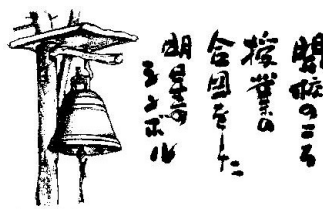 開校のころ
授業の
合図をした
明星の
シンボル